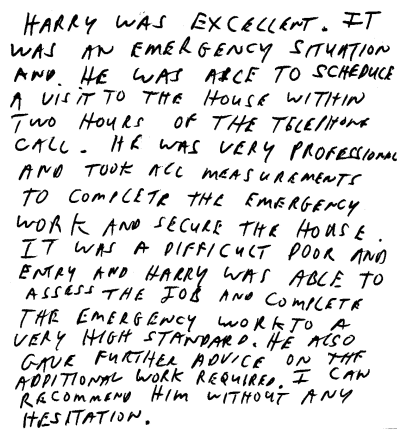 HARRY WAS EXCELLENT. IT
WAS AN EMERGENCY SITUATION
AND. HE WAS ABLE TO SCHEDULE
A VISIT TO THE HOUSE WITHIN
TWO HOURS OF THE TELEPHONE
CALL. HE WAS VERY PROFESSIONAL
AND TOOK ALL MEASUREMENTS
TO COMPLETE THE EMERGENCY
WORK AND SECURE THE HOUSE.
IT WAS A DIFFICULT DOOR AND
ENTRY AND HARRY WAS ABLE TO
ASSESS THE JOB AND COMPLETE
THE EMERGENCY WORK TO A
VERY HIGH STANDARD. HE ALSO
GAVE FURTHER ADVICE ON THE
ADDITIONAL WORK REQUIRED. I CAN
RECOMMEND HIM WITHOUT ANY
HESITATION.